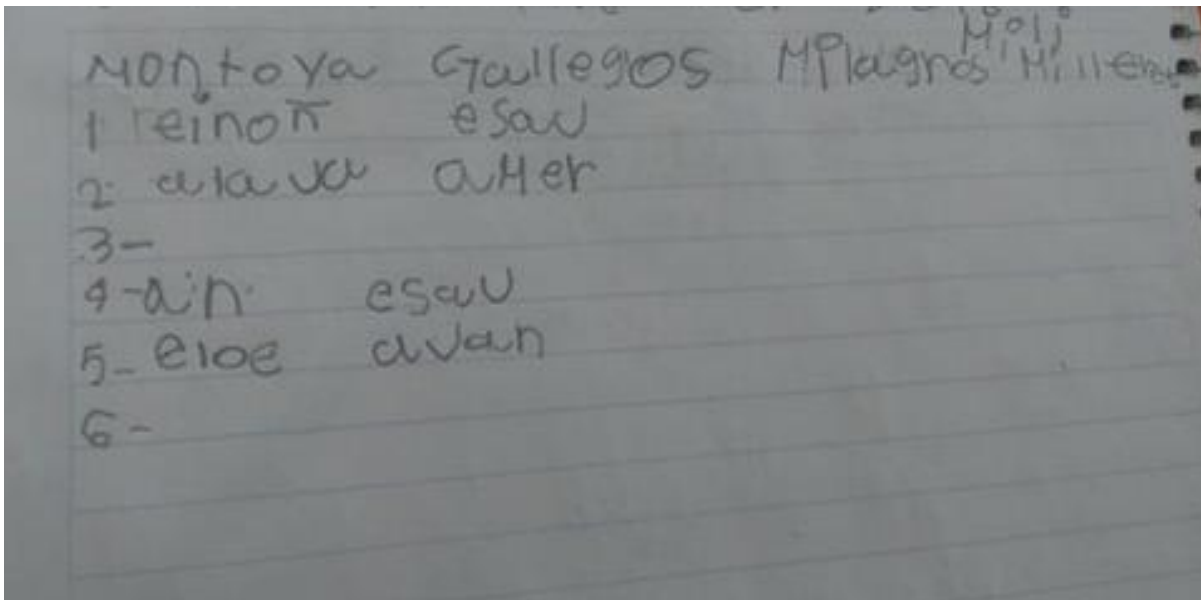 Montoya Gallegos Mplagros Miller
1 reinon esau
2- alava aMer
3-
4-ain esau
5- eloe avan
6-